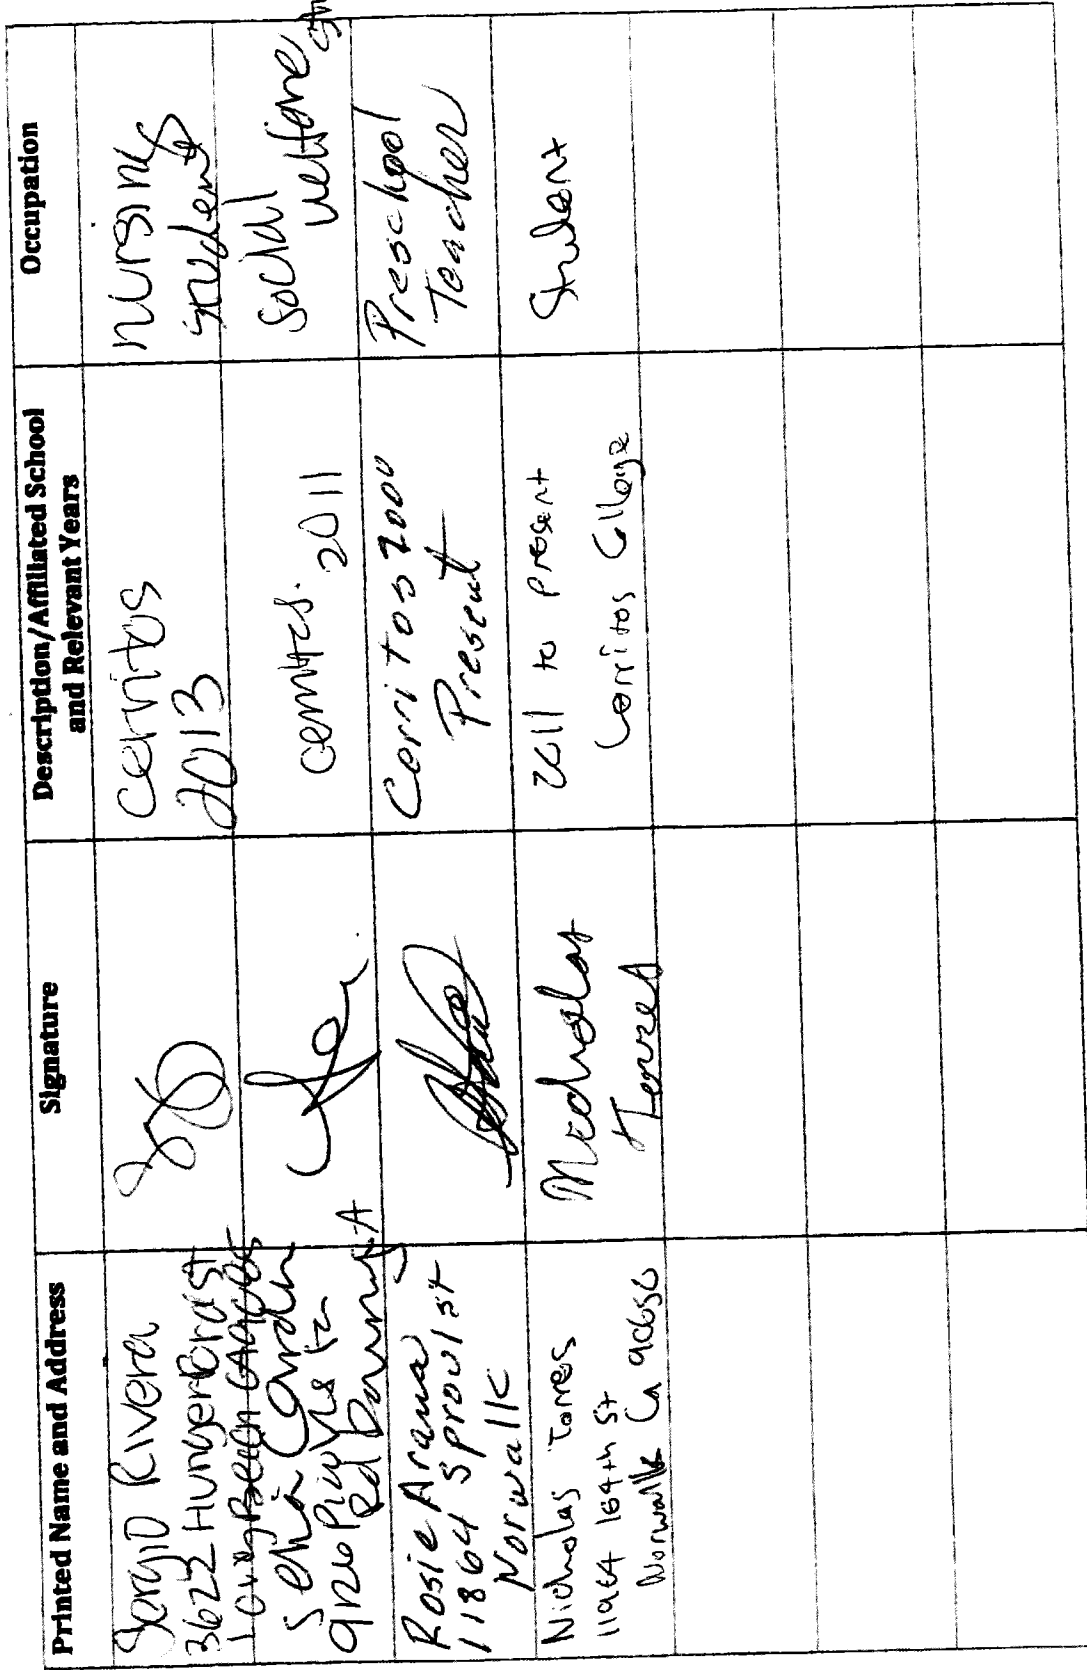 Printed Name and Address
Signature
Description/Affiliated School
and Relevant Years
Occupation
Sergio Rivera
3622 Hungerford St
Long Beach CA
Cerritos
2013
nursing
student
Cerritos. 2011
social
welfare
Rosie Arana
11864 Sproul St
Norwalk
Cerritos 2000
Present
Preschool
Teacher
Nicholas Torres
164th St
Norwalk Ca 90650
Nicholas
Torres
2011 to present
Cerritos College
Student